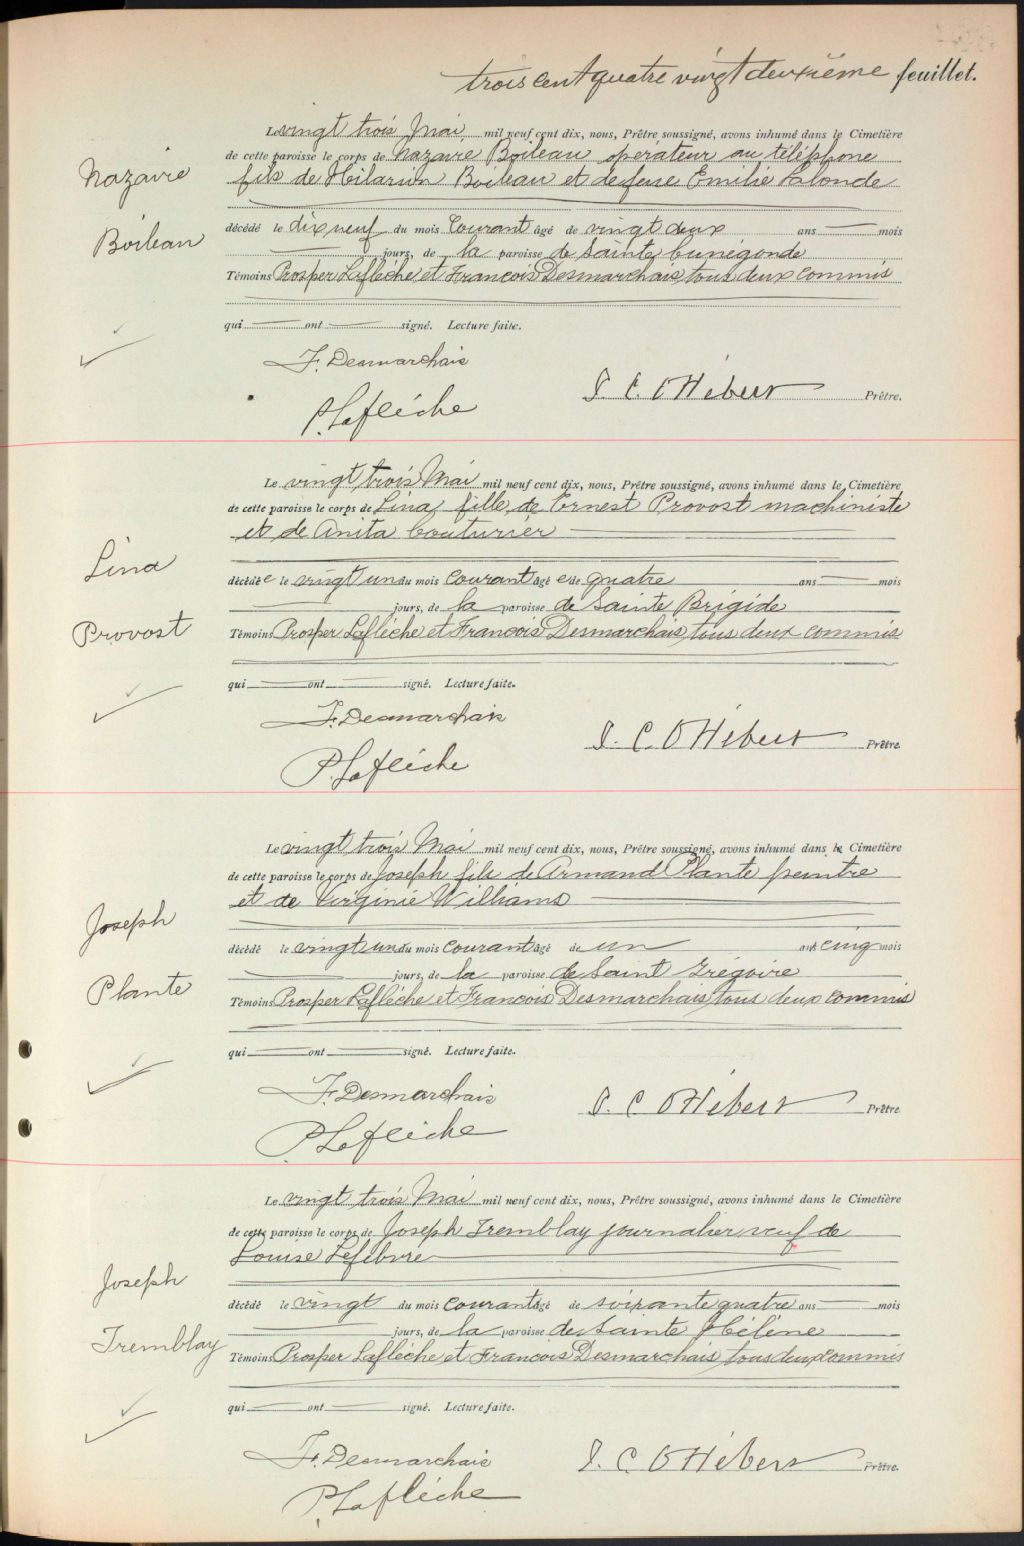 trois cent quatre vingt deuxième feuillet.
Le vingt trois Mai mil neuf cent dix, nous, Prêtre soussigné, avons inhumé dans le Cimetière
de cette paroisse le corps de Nazaire Boileau opérateur au téléphone
fils de Hilarion Boileau et de feue Emilie Lalonde
Nazaire
Boileau
décédé le dix neuf du mois Courant âgé de vingt deux ans mois
jours, de la paroisse de Sainte Cunégonde
Témoins Prosper Laflèche et François Desmarchais, tous deux commis
qui ont signé. Lecture faite.
F. Desmarchais
J. C. O Hébert Prêtre.
P. Laflèche
Le vingt trois Mai mil neuf cent dix, nous, Prêtre soussigné, avons inhumé dans le Cimetière
de cette paroisse le corps de Lina fille de Ernest Provost machiniste
et de Anita Couturier
Lina
Provost
décédée le vingt un du mois Courant âgée de quatre ans mois
jours, de la paroisse de Sainte Brigide
Témoins Prosper Laflèche et François Desmarchais, tous deux commis
qui ont signé. Lecture faite.
F. Desmarchais
J. C. O Hébert Prêtre.
P. Laflèche
Le vingt trois Mai mil neuf cent dix, nous, Prêtre soussigné, avons inhumé dans le Cimetière
de cette paroisse le corps de Joseph fils de Armand Plante peintre
et de Virginie Williams
Joseph
Plante
décédé le vingt un du mois courant âgé de un ans cinq mois
jours, de la paroisse de Saint Grégoire
Témoins Prosper Laflèche et François Desmarchais, tous deux commis
qui ont signé. Lecture faite.
F. Desmarchais
J. C. O Hébert Prêtre.
P. Laflèche
Le vingt trois Mai mil neuf cent dix, nous, Prêtre soussigné, avons inhumé dans le Cimetière
de cette paroisse le corps de Joseph Tremblay journalier veuf de
Louise Lefebvre
Joseph
Tremblay
décédé le vingt du mois courant âgé de soixante quatre ans mois
jours, de la paroisse de Sainte Hélène
Témoins Prosper Laflèche et François Desmarchais, tous deux commis
qui ont signé. Lecture faite.
F. Desmarchais
J. C. O Hébert Prêtre.
P. Laflèche